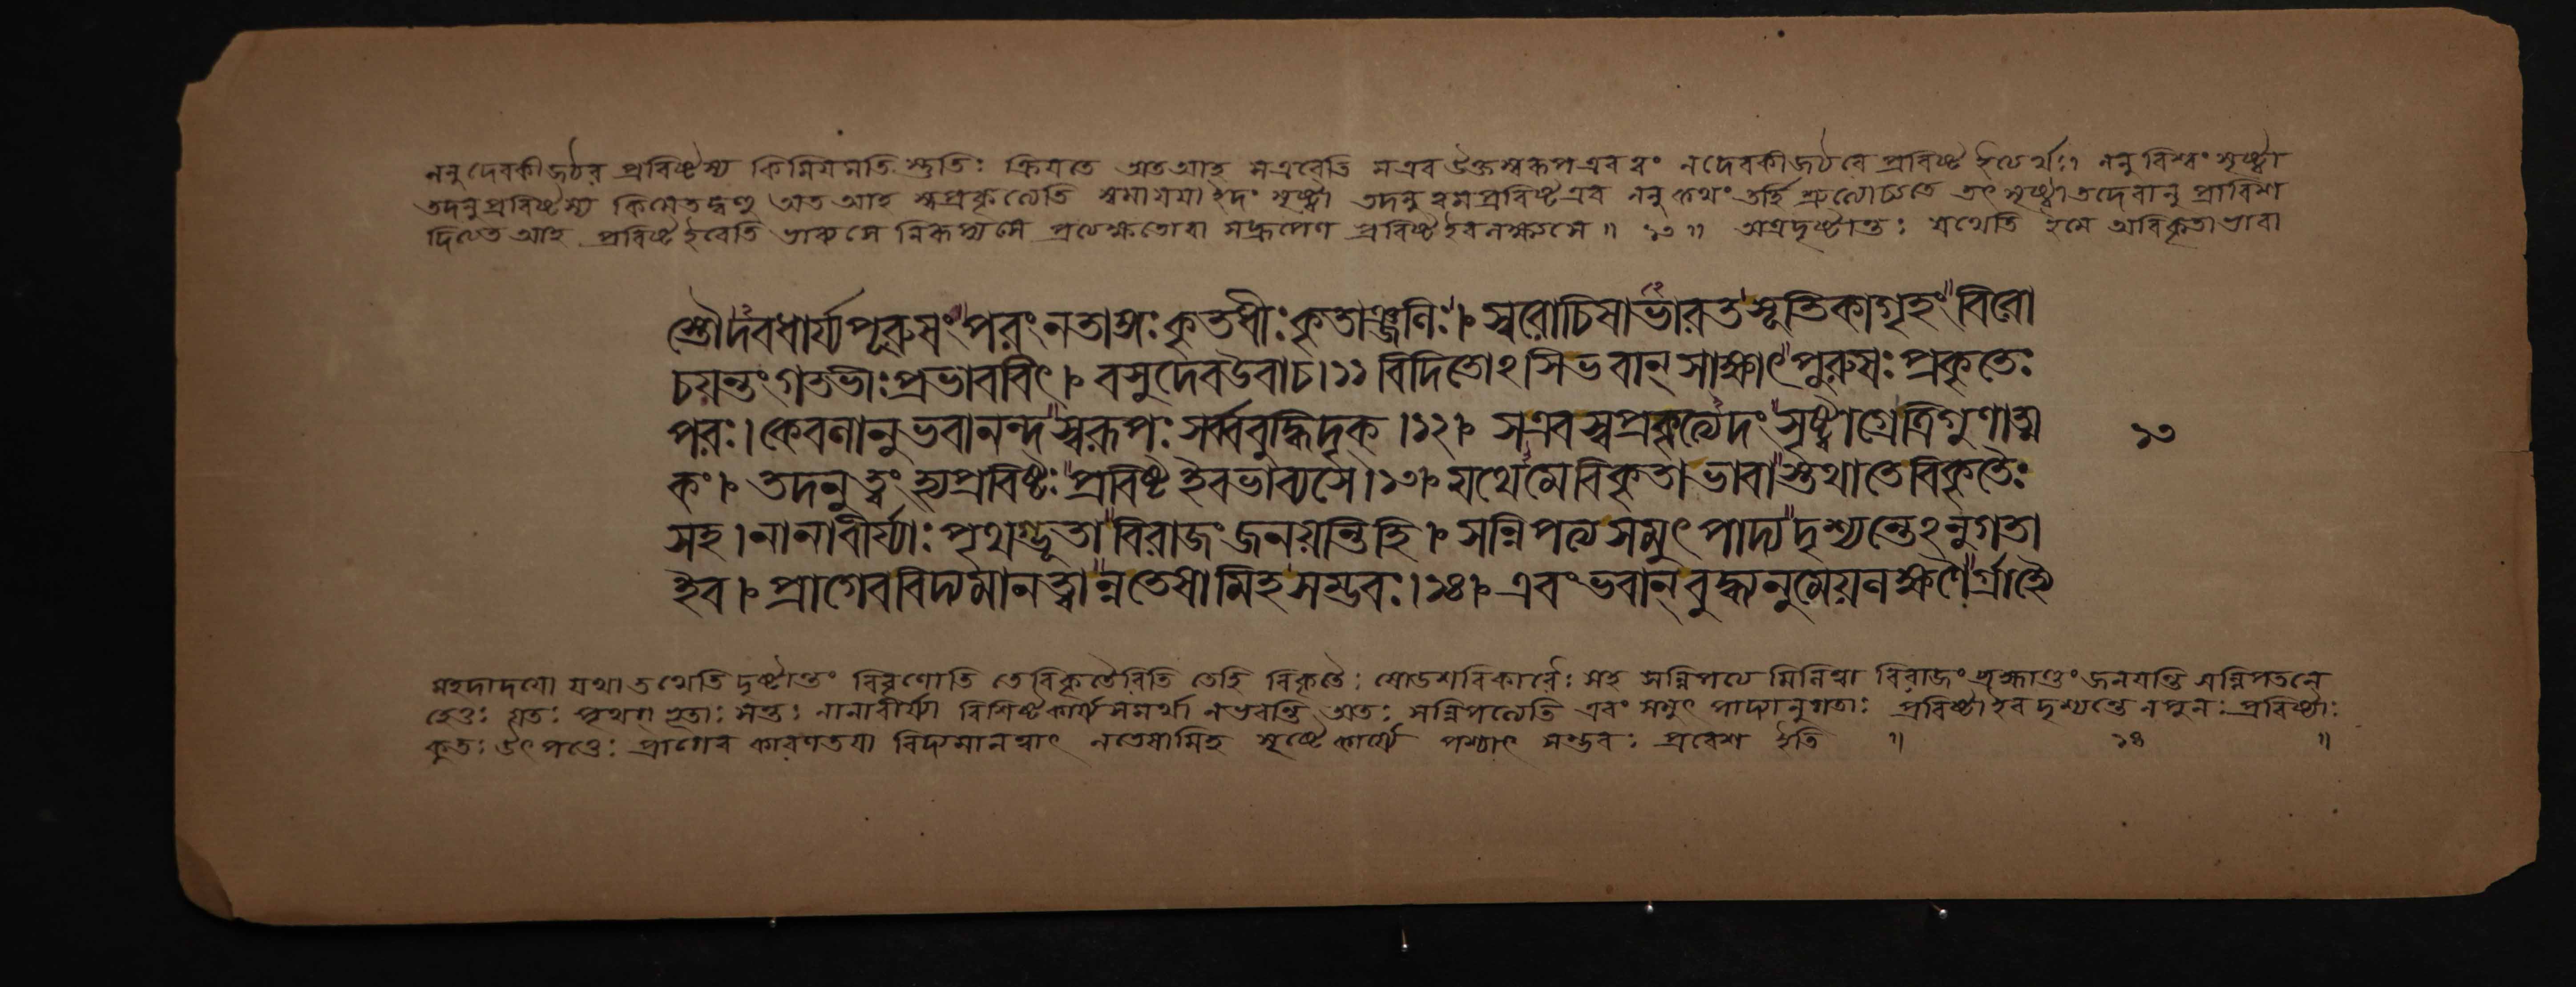 ননু দেবকীজঠর প্রবিষ্টস্য কিমিয়মতি স্তুতিঃ ক্রিয়তে অতআহ সএবেতি সএব উক্তস্বরূপএব ত্বং নদেবকীজঠরে প্রবিষ্ট ইত্যর্থঃ। ননু বিশ্বং সৃষ্ট্বা
তদনুপ্রবিষ্টস্য কিমেতদ্বণু অত আহ স্বপ্রকৃত্যেতি স্বমায়য়া ইদং সৃষ্ট্বা তদনু ত্বমপ্রবিষ্টএব ননু কথং তর্হি শ্রুত্যোচ্যতে তৎ সৃষ্ট্বা তদেবানু প্রাবিশ
দিত্যত আহ প্রবিষ্ট ইবেতি ভাব্যসে নিরূপ্যসে প্রত্যেক্ষতোবা সদ্রূপেণ প্রবিষ্টইবলক্ষ্যসে ॥ ১৩ ॥ অত্রদৃষ্টান্তঃ যথেতি ইমে অবিকৃতাভাবা
স্তৌদবধার্য্যপূরুষং পরং নতাঙ্গঃ কৃতধীঃ কৃতাঞ্জলিঃ। স্বরোচিষাভারতসূতিকাগৃহং বিরো
চয়ন্তং গতভীঃ প্রভাববিৎ। বসুদেবউবাচ।১১ বিদিতোঽসিভবান্ সাক্ষাৎ পুরুষঃ প্রকৃতেঃ
পরঃ। কেবলানুভবানন্দ স্বরূপঃ সর্ব্ববুদ্ধিদৃক।১২। সএবস্বপ্রকৃত্যেদং সৃষ্ট্বাগ্রেত্রিগুণাত্ম
১৩
কং। তদনুত্বং হ্যপ্রবিষ্টঃ প্রবিষ্ট ইবভাব্যসে।১৩। যথেমেবিকৃতাভাবা স্তথাতেবিকৃতৈঃ
সহ। নানাবীর্য্যাঃ পৃথগ্ভূতা বিরাজং জনয়ন্তিহি। সন্নিপত্যসমুৎপাদ্য দৃশ্যন্তেঽনুগতা
ইব। প্রাগেববিদ্যমানত্বান্নতেষামিহসম্ভবঃ।১৪। এবং ভবান্ বুদ্ধ্যনুমেয়লক্ষণৈর্গ্রাহ্যৈ
মহদাদয়ো যথা তথেতি দৃষ্টান্তং বিবৃণোতি তেবিকৃতৈরিতি তেহি বিকৃতৈঃ ষোডশবিকারৈঃ সহ সন্নিপত্য মিলিত্বা বিরাজং ব্রহ্মাণ্ডং জনয়ন্তি সন্নিপতনে
হেতুঃ যতঃ পৃথগ্ভূতাঃ সন্তঃ নানাবীর্য্যা বিশিষ্টকার্য্যসমর্থা নভবন্তি অতঃ সন্নিপত্যেতি এবং সমুৎ পাদ্যানুগতাঃ প্রবিষ্টাইব দৃশ্যন্তে নপুনঃ প্রবিষ্টাঃ
কুতঃ উৎপত্তেঃ প্রাগেব কারণতয়া বিদ্যমানত্বাৎ নতেষামিহ সৃষ্টে কার্য্যে পশ্চাৎ সম্ভবঃ প্রবেশ ইতি ॥ ১৪ ॥